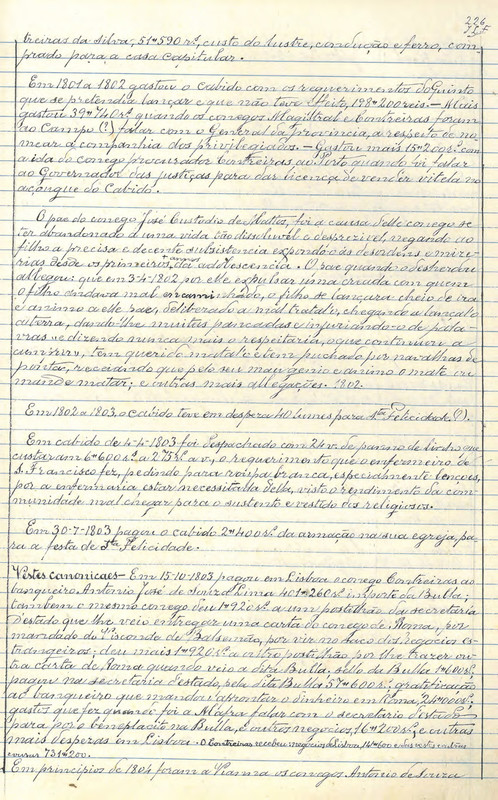 226
treiras da Silva; 51#590 rs, custo do lustre, condução e ferro, com-
prado para a casa capitular.
Em 1801 a 1802 gastou o cabido com os requerimentos do Quinto
que se pretendia lançar e que não teve efeito, 198#200 reis. — Mais
gastou 39#740 rs quando os conegos Magistral e Contreiras foram
ao Campo (?) falar com o General da provincia, a respeito de no-
mear a companhia dos privilegiados. — Gastou mais 15#200 rs com
a ida do conego procurador Contreiras ao Porto quando foi falar
ao Governador das justiças para dar licença de vender vitela no
açougue do Cabido.
O pae do conego José Custodio de Mattos, foi a causa d'elle conego se
ter abandonado a uma vida tão dissoluvel e desprezivel, negando ao
filho a precisa e decente subsistencia expondo-o ás desordens e mise-
rias desde os primeiros annos da adolescencia. O pae quando o desherdou
allegou: que em 3-4-1802 por elle expulsar uma criada com quem
o filho andava mal encaminhado, o filho se lançara cheio de ira
e animo a elle pae, deliberado a mal trata-lo, chegando a lança-lo
a terra, dando-lhe muitas pancadas e injuriando-o de pala-
vras «e dizendo nunca mais o respeitaria, o que continuou a
cumprir», tem querido mata-lo e tem puchado por navalhas de
ponta, receiando que pelo seu mau genio e animo o mate ou
mande matar; e outras mais allegações. 1802.
Em 1802 a 1803, o cabido teve em despeza 40 lumes para Sta Felicidade (?).
Em cabido de 4-4-1803 foi despachado com 24 v. de panno de linho que
custaram 6#600 rs a 275 rs a v., o requerimento que o enfermeiro de
S. Francisco fez, pedindo para roupa branca, especialmente lençoes,
por a enfermaria estar necessitada d'ella, visto o rendimento da com-
munidade mal chegar para o sustento e vestido dos religiosos.
Em 30-7-1803 pagou o cabido 2#400 rs da armação na sua egreja, pa-
ra a festa de Sta Felicidade.
Vestes canonicaes — Em 15-10-1803 pagou em Lisboa o conego Contreiras ao
banqueiro Antonio José de Souza Lima 401#260 rs importe da Bulla;
tambem o mesmo conego deu 1#920 rs a um postilhão da secretaria
d'estado que lhe veio entregar uma carta do conego de Roma, por
mandado do Visconde de Balsemão, por vir no saco dos negocios es-
trangeiros; deu mais 1#920 rs a outro postilhão por lhe trazer ou-
tra carta de Roma quando veio a dita Bulla. Sello da Bulla 1#600 rs;
pagou na secretaria d'estado, pela dita Bulla 57#600 rs; gratificação
ao banqueiro que mandou aprontar o dinheiro em Roma, 24#000 rs;
gastos que fez quando foi a Mafra falar com o secretario d'estado
para pôr o beneplacito na Bulla, e outros negocios, 16#200 rs; e outras
mais despezas em Lisboa. O Contreiras recebeu
731#200.
Em principios de 1804 foram a Vianna os conegos Antonio de Souza